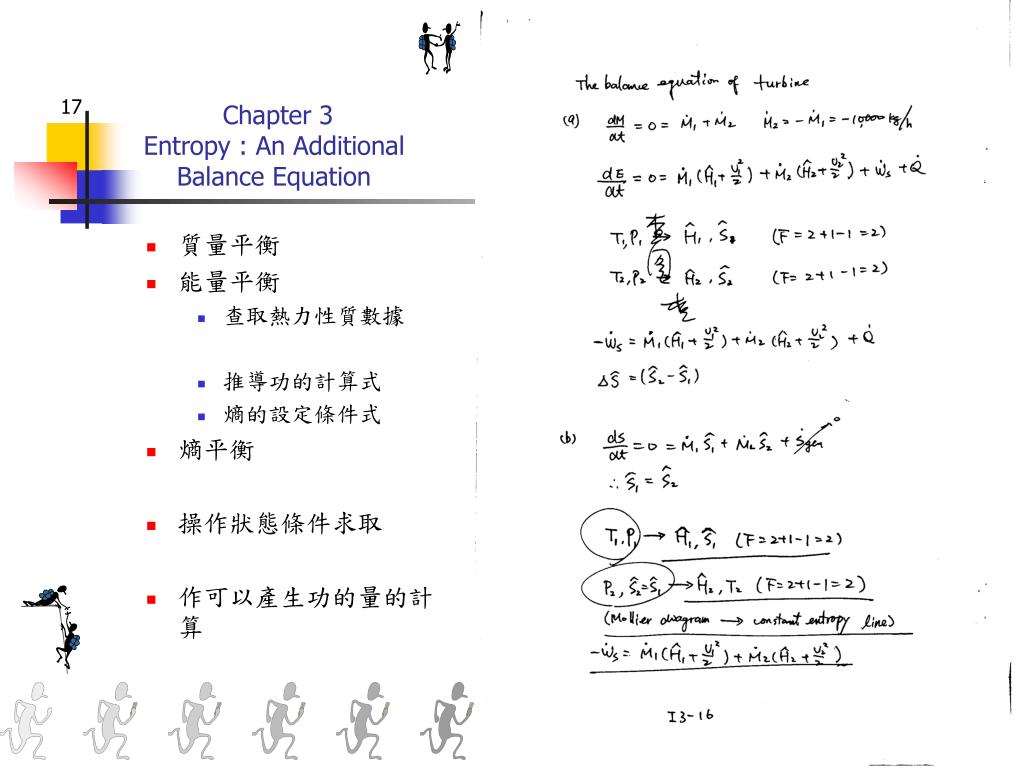 17
Chapter 3
Entropy : An Additional
Balance Equation
質量平衡
能量平衡
查取熱力性質數據
推導功的計算式
熵的設定條件式
熵平衡
操作狀態條件求取
作可以產生功的量的計
算
The balance equation of turbine
(a) dM/dt = 0 = Ṁ₁ + Ṁ₂ Ṁ₂ = −Ṁ₁ = −10,000 kg/h
dE/dt = 0 = Ṁ₁(Ĥ₁ + U₁²/2) + Ṁ₂(Ĥ₂ + U₂²/2) + Ẇs + Q̇
T₁, P₁ 查 Ĥ₁, Ŝ₁ (F = 2+1−1 = 2)
T₂, P₂ Ĥ₂, Ŝ₂ (F = 2+1−1 = 2)
−Ẇs = Ṁ₁(Ĥ₁ + U₁²/2) + Ṁ₂(Ĥ₂ + U₂²/2) + Q̇
ΔŜ = (Ŝ₂ − Ŝ₁)
(b) dS/dt = 0 = Ṁ₁Ŝ₁ + Ṁ₂Ŝ₂ + Ṡgen 0
∴ Ŝ₁ = Ŝ₂
T₁, P₁ → Ĥ₁, Ŝ₁ (F = 2+1−1 = 2)
P₂, Ŝ₂ = Ŝ₁ → Ĥ₂, T₂ (F = 2+1−1 = 2)
(Mollier diagram → constant entropy line)
−Ẇs = Ṁ₁(Ĥ₁ + U₁²/2) + Ṁ₂(Ĥ₂ + U₂²/2)
I3-16